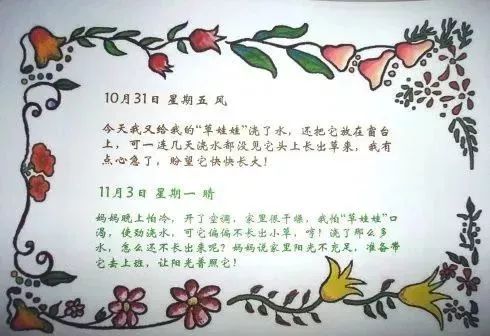 10月31日 星期五 风
今天我又给我的“草娃娃”浇了水，还把它放在窗台
上，可一连几天浇水都没见它头上长出草来，我有
点心急了，盼望它快快长大！
11月3日 星期一 晴
妈妈晚上怕冷，开了空调，家里很干燥，我怕“草娃娃”口
渴，使劲浇水，可它偏偏不长出小草，唷！浇了那么多
水，怎么还不长出来呢？妈妈说家里阳光不充足，准备带
它去上班，让阳光普照它！